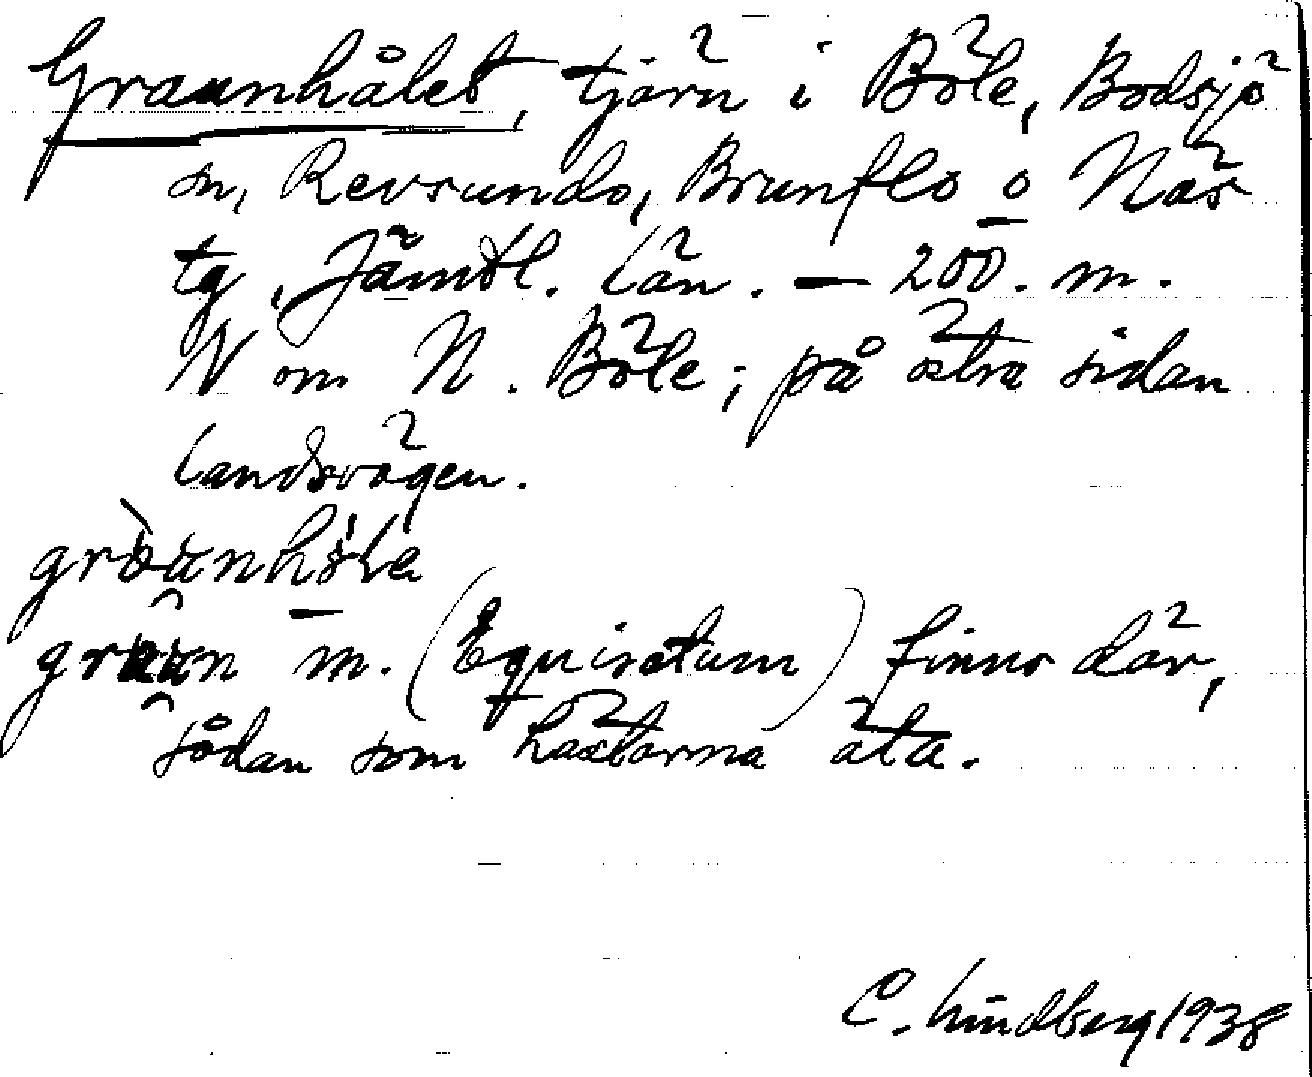 Graunhålet, tjärn i Böle, Bodsjö
sn, Revsunds, Brunflo o Näs
tg, Jämtl. län. — 200. m.
N om N. Böle; på östra sidan
landsvägen.
m. (Equisetum) finns där,
sådan som hästarna äta.
C. Lindberg 1938